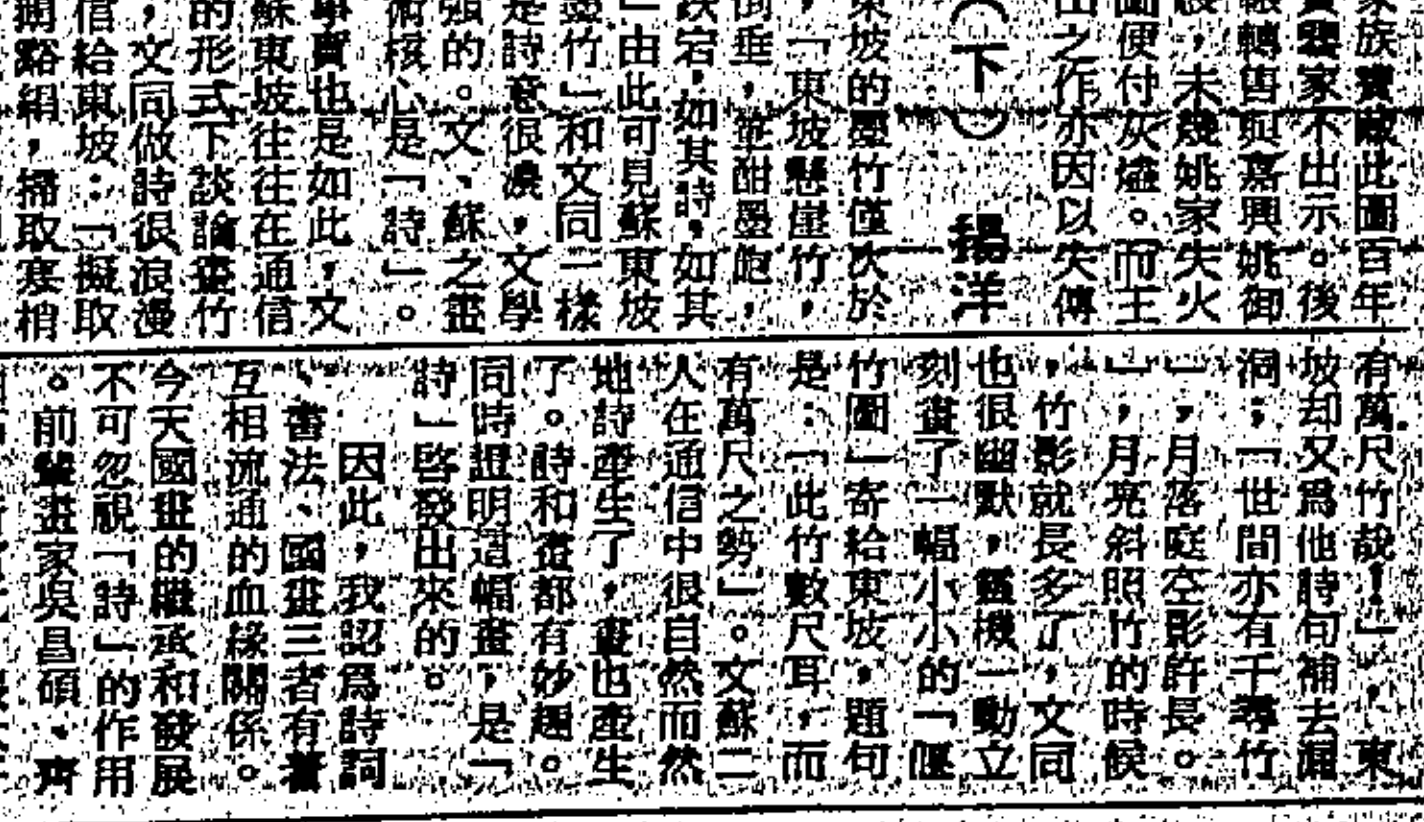 家族寶藏此圖百年
家不出示。後
轉售與嘉興姚御
，未幾姚家失火
圖便付灰燼。而王
出之作亦因以失傳
（下） 楊洋
東坡的墨竹僅次於
，「東坡懸崖竹，
倒垂，筆酣墨飽，
跌宕，如其詩，如其
」由此可見蘇東坡
墨竹」和文同一樣
是詩意很濃，文學
強的。文、蘇之畫
術核心是「詩」。
學實也是如此，文
蘇東坡往往在通信
的形式下談論畫竹
，文同做詩很浪漫
信給東坡：「擬取
鵝谿絹，掃取寒梢
有萬尺竹哉！」，東
坡却又爲他詩句補去漏
洞；「世間亦有千尋竹
」，月落庭空影許長。
」，月亮斜照竹的時候
，竹影就長多了，文同
也很幽默，靈機一動立
刻畫了一幅小小的「偃
竹圖」寄給東坡，題句
是：「此竹數尺耳，而
有萬尺之勢」。文蘇二
人在通信中很自然而然
地詩產生了，畫也產生
了。詩和畫都有妙趣。
同時證明這幅畫，是「
詩」啓發出來的。
因此，我認爲詩詞
、書法、國畫三者有着
互相流通的血緣關係。
今天國畫的繼承和發展
不可忽視「詩」的作用
。前輩畫家吳昌碩、齊